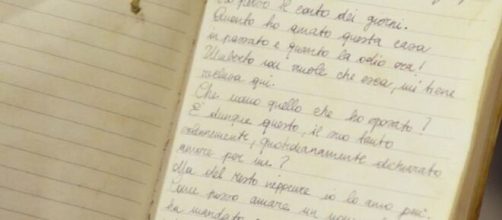 perso il conto dei giorni.
Quanto ho amato questa casa
in passato e quanto la odio ora!
Umberto non vuole che esca, mi tiene
reclusa qui.
Che uomo quello che ho sposato?
E' dunque questo, il suo tanto
solennemente, quotidianamente dichiarato
amore per me?
Ma del resto neppure io lo amo più
Come posso amare un uomo
ha mandato